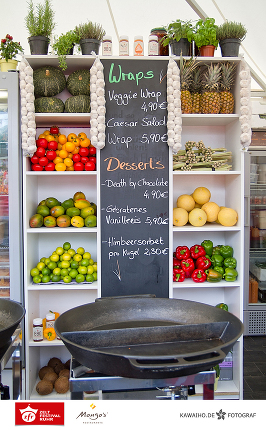 Wraps
Veggie Wrap
4,90€
Caesar Salad
Wrap 5,90€
Desserts
-Death by Chocolate
4,90€
-Gebratenes
Vanilleeis 5,90€
-Himbeersorbet
pro Kugel 2,30€
DELI
FESTIVAL
RUHR
Mongo's
RESTAURANTS
KAWAIHO.DE FOTOGRAF